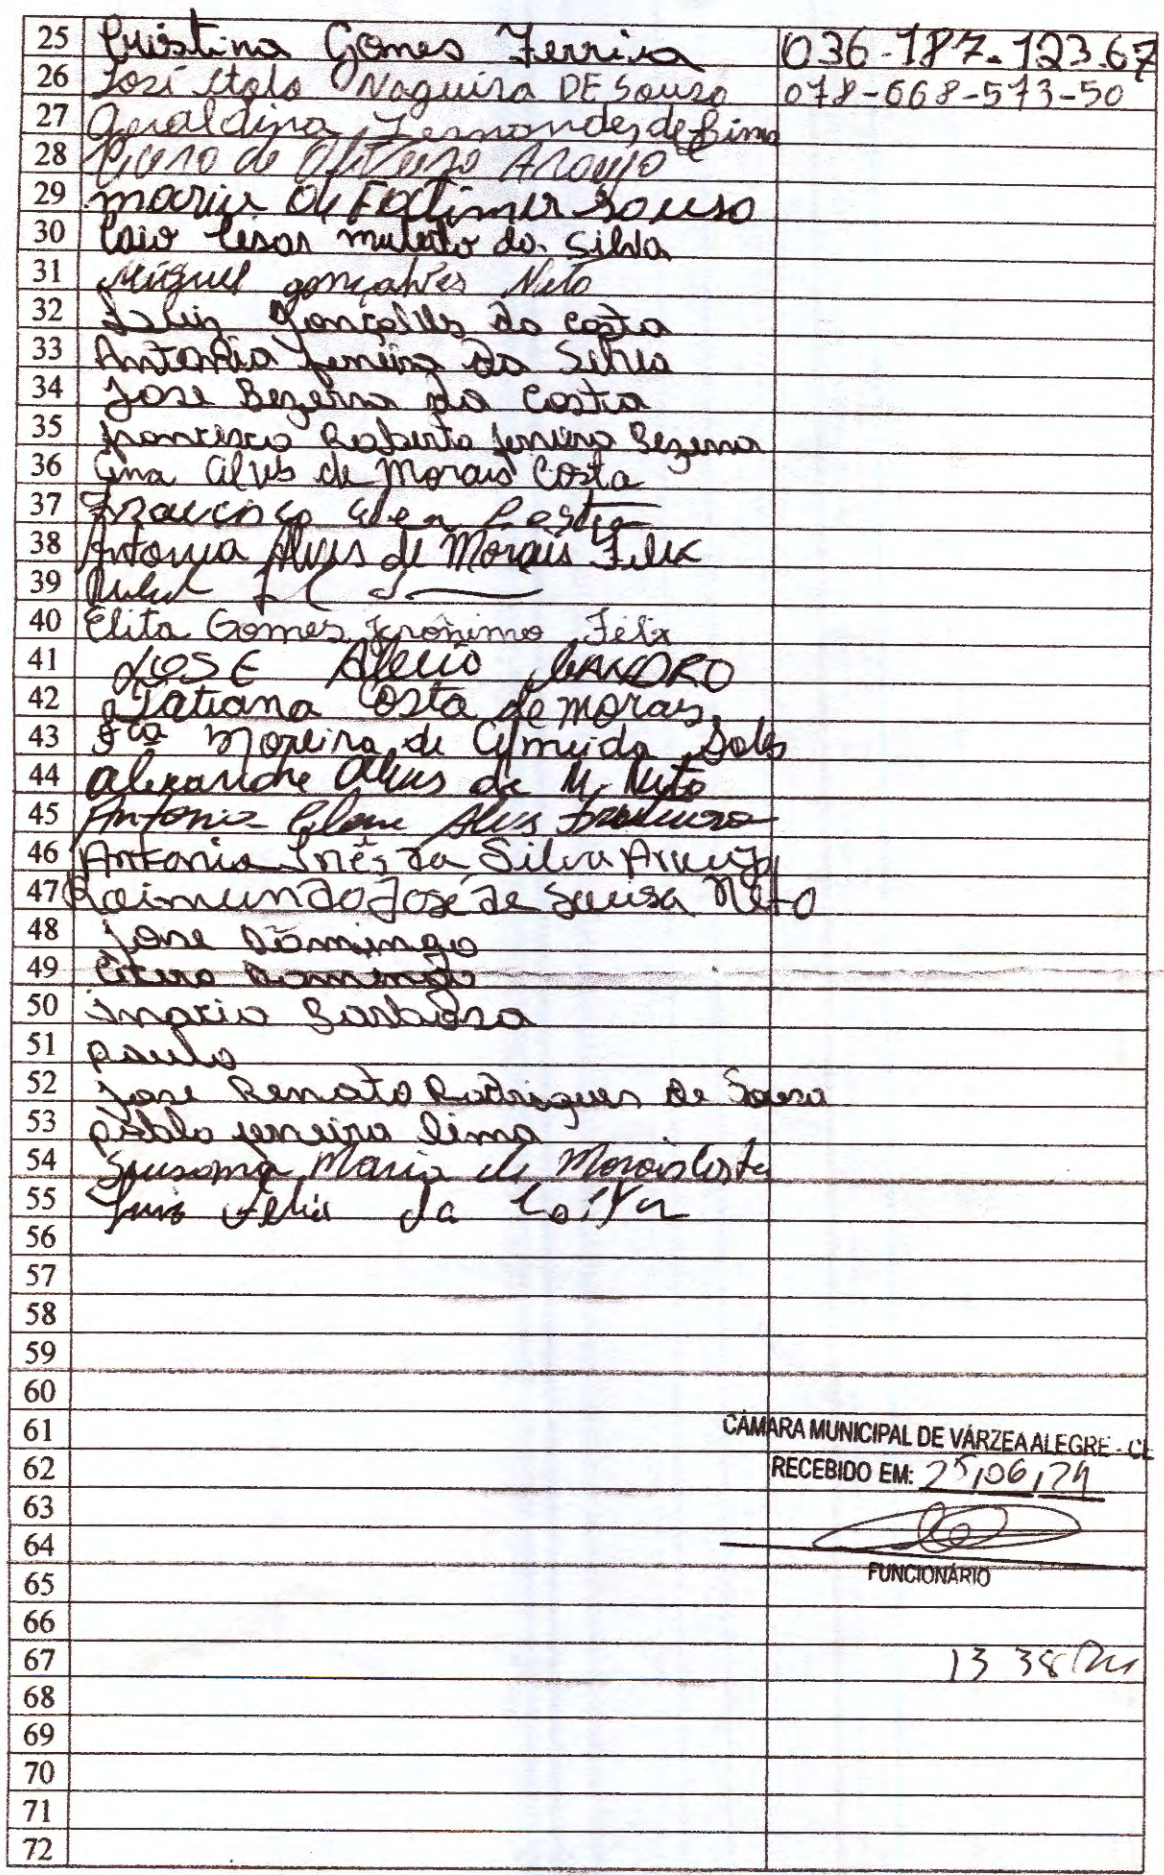 25 Cristina Gomes Ferreira 036-187-123.67
26 José Italo Nogueira DE Souza 078-668-573-50
27 Geraldina Fernandes de Lima
28 Cicero de Oliveira Araujo
29 maria de Fatima Souso
30 Caio Cesar mulato da Silva
31 Miguel gonçalves Neto
32 Luiz Gonçalves da costa
33 Antonia ferreira da Silva
34 Jose Bezerra da Costa
35 francisco Roberto ferreira Bezerra
36 Ana Alves de Morais Costa
37 Francisco
38 Antonia Alves de Morais Felix
39
40 Elita Gomes Jeronimo Felix
41 JOSE Alecio
42 Tatiana Costa de morais
43 Fca Moreira de Almeida Sales
44 alexandre alves de M. Neto
45 Antonia Alves
46 Antonia Inês da Silva Araujo
47 Raimundo José de Sousa Neto
48 Jose Domingo
49 Cicero Domingo
50 Maria Barbosa
51 paulo
52 Jose Renato Rodrigues de Sousa
53 pablo pereira lima
54 Susana Maria de Morais Costa
55 Luis Felix da Costa
56
57
58
59
60
61 CÂMARA MUNICIPAL DE VÁRZEA ALEGRE - CE
62 RECEBIDO EM: 25/06/24
63
64
65 FUNCIONÁRIO
66
67 13 38
68
69
70
71
72